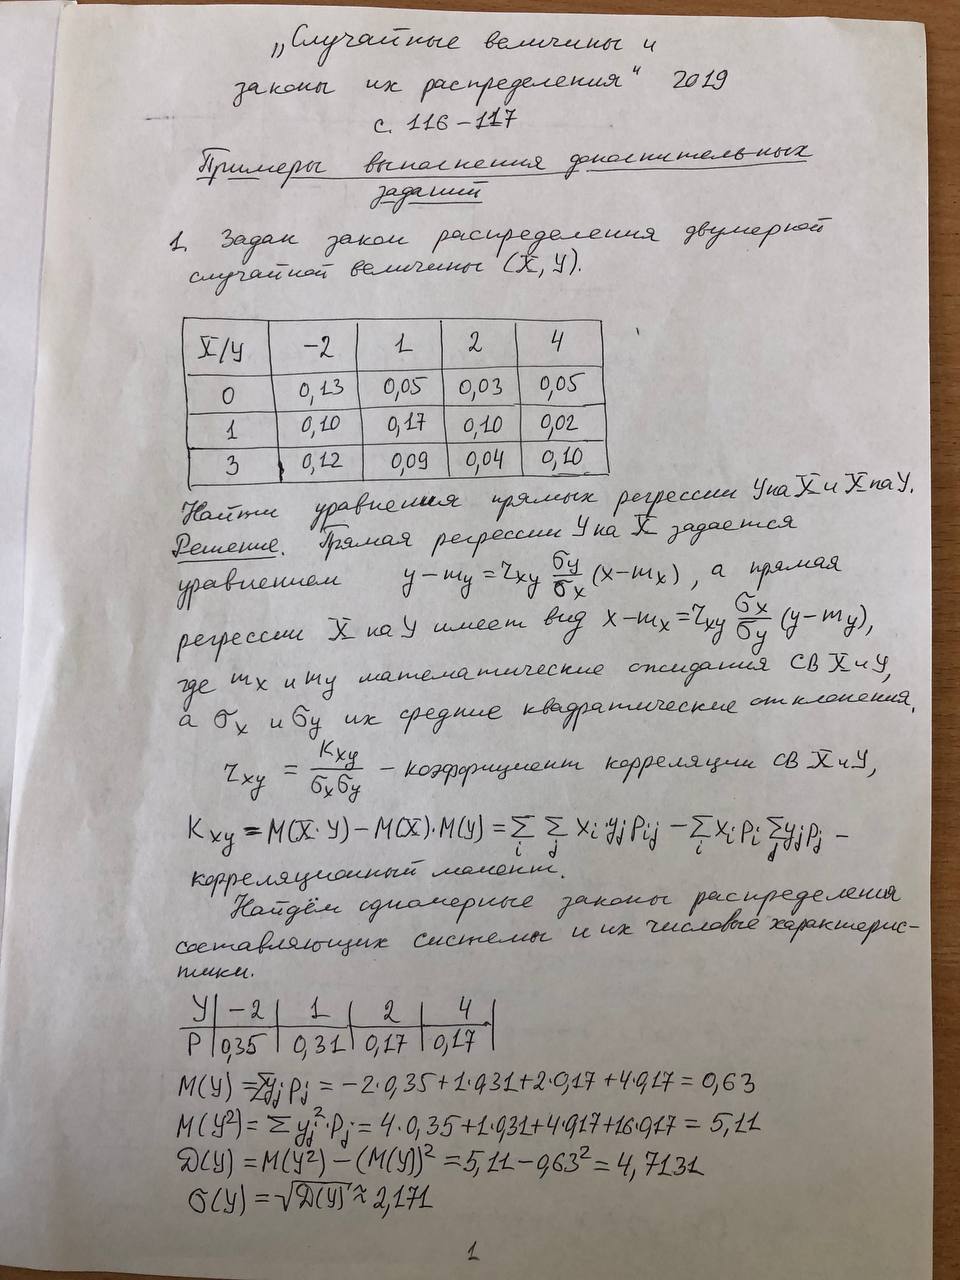 „Случайные величины и
законы их распределения" 2019
с. 116-117
Примеры выполнения дополнительных
заданий
1. Задан закон распределения двумерной
случайной величины (X, Y).
X/Y -2 1 2 4
0 0,13 0,05 0,03 0,05
1 0,10 0,17 0,10 0,02
3 0,12 0,09 0,04 0,10
Найти уравнения прямых регрессии Y на X и X на Y.
Решение. Прямая регрессии Y на X задаётся
уравнением y - m_y = r_xy σ_y/σ_x (x - m_x), а прямая
регрессии X на Y имеет вид x - m_x = r_xy σ_x/σ_y (y - m_y),
где m_x и m_y математические ожидания СВ X и Y,
а σ_x и σ_y их средние квадратические отклонения,
r_xy = K_xy/(σ_x σ_y) - коэффициент корреляции СВ X и Y,
K_xy = M(X·Y) - M(X)·M(Y) = Σ_i Σ_j x_i·y_j p_ij - Σ_i x_i p_i Σ_j y_j p_j -
корреляционный момент.
Найдём одномерные законы распределения
составляющих системы и их числовые характерис-
тики.
Y -2 1 2 4
P 0,35 0,31 0,17 0,17
M(Y) = Σ y_j p_j = -2·0,35+1·0,31+2·0,17+4·0,17 = 0,63
M(Y²) = Σ y_j²·p_j = 4·0,35+1·0,31+4·0,17+16·0,17 = 5,11
D(Y) = M(Y²) - (M(Y))² = 5,11 - 0,63² = 4,7131
σ(Y) = √D(Y) ≈ 2,171
1